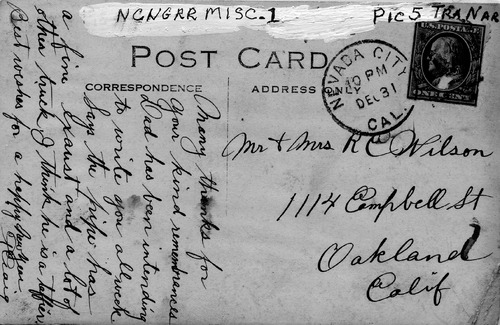 NCNGRR MISC-1
PIC 5 TRANAR
POST CARD
CORRESPONDENCE
ADDRESS ONLY
NEVADA CITY
10 PM
DEC 31
CAL.
U.S. POSTAGE
ONE CENT
Mr & Mrs R C Wilson
1114 Campbell St
Oakland
Calif
Many thanks for
your kind remembrances
Dad has been intending
to write you all week
Says the pipe has
a fine exaust and a lot of
other truck I think he is a
Best wishes for a happy New Year